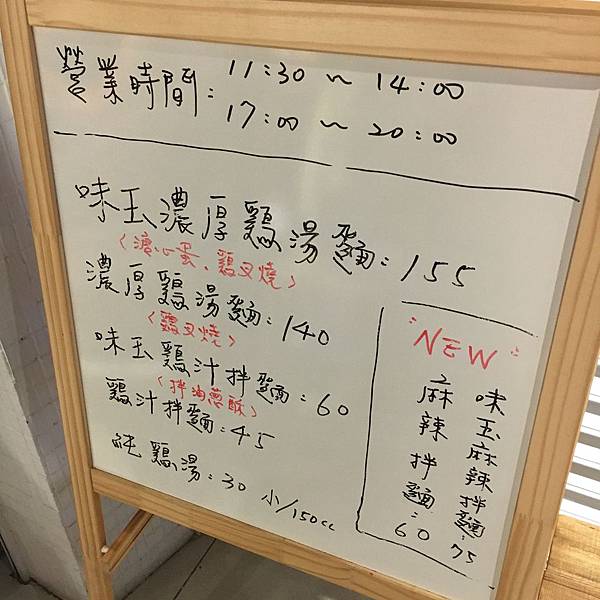 營業時間: 11:30~14:00
17:00~20:00
味玉濃厚鷄湯麵:155
(溏心蛋、鷄叉燒)
濃厚鷄湯麵:140
(鷄叉燒)
味玉鷄汁拌麵:60
(拌油蔥酥)
鷄汁拌麵:45
純鷄湯:30 小/150cc
"NEW"
麻辣拌麵:60
味玉麻辣拌麵:75